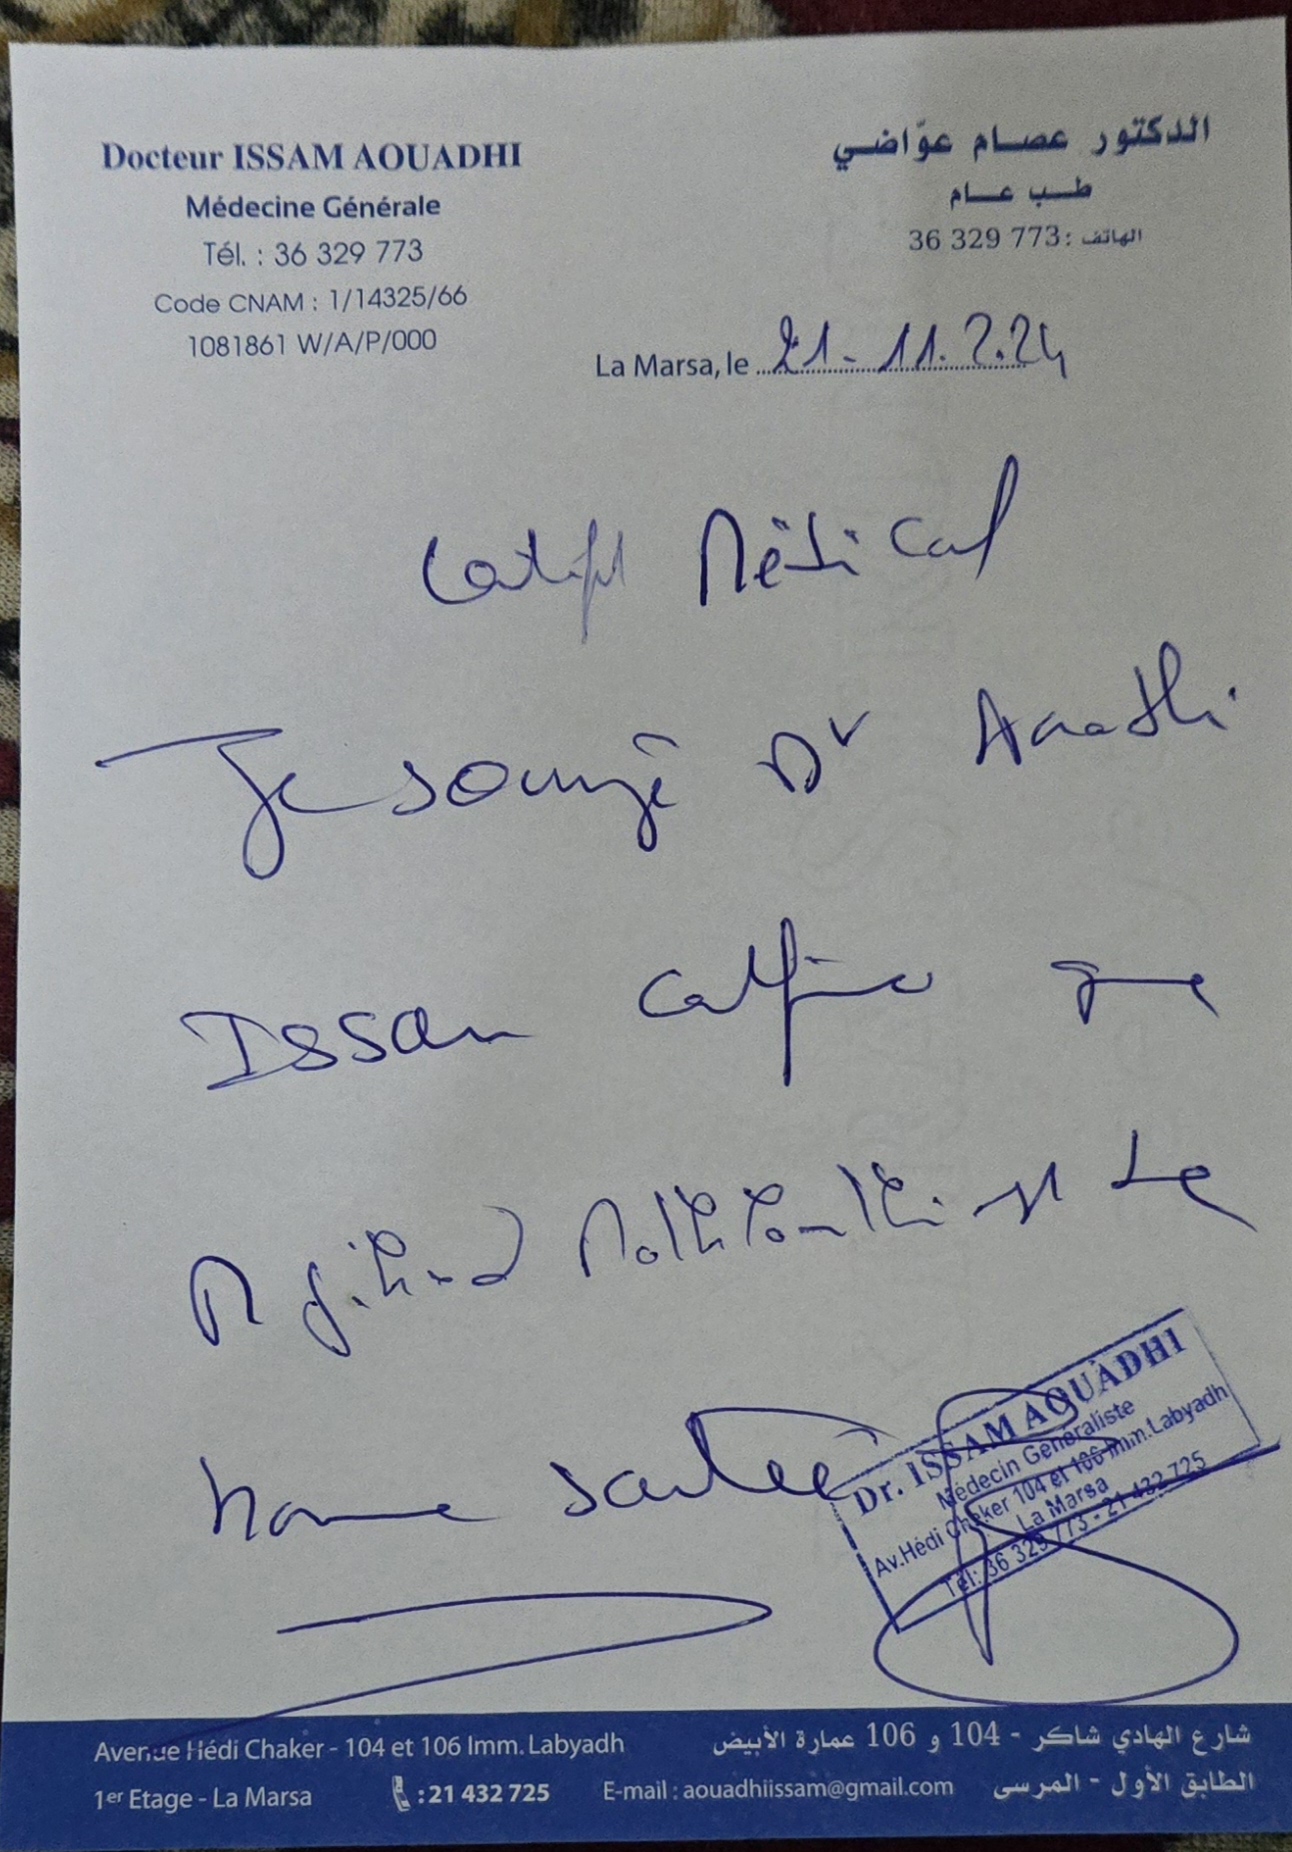 Docteur ISSAM AOUADHI
Médecine Générale
Tél. : 36 329 773
Code CNAM : 1/14325/66
1081861 W/A/P/000
الدكتور عصام عوّاضي
طب عام
الهاتف : 36 329 773
La Marsa, le 21-11.2.24
Certifi Médical
Je soussigné Dr Aouadhi
Issam certifie que
M Jihed est de
bonne santé
Dr. ISSAM AOUADHI
Médecin Généraliste
Av.Hédi Chaker 104 et 106 Imm.Labyadh
La Marsa
Tél: 36 329 773 - 21 432 725
Avenue Hédi Chaker - 104 et 106 Imm. Labyadh
1er Etage - La Marsa
: 21 432 725
E-mail : aouadhiissam@gmail.com
شارع الهادي شاكر - 104 و 106 عمارة الأبيض
الطابق الأول - المرسى